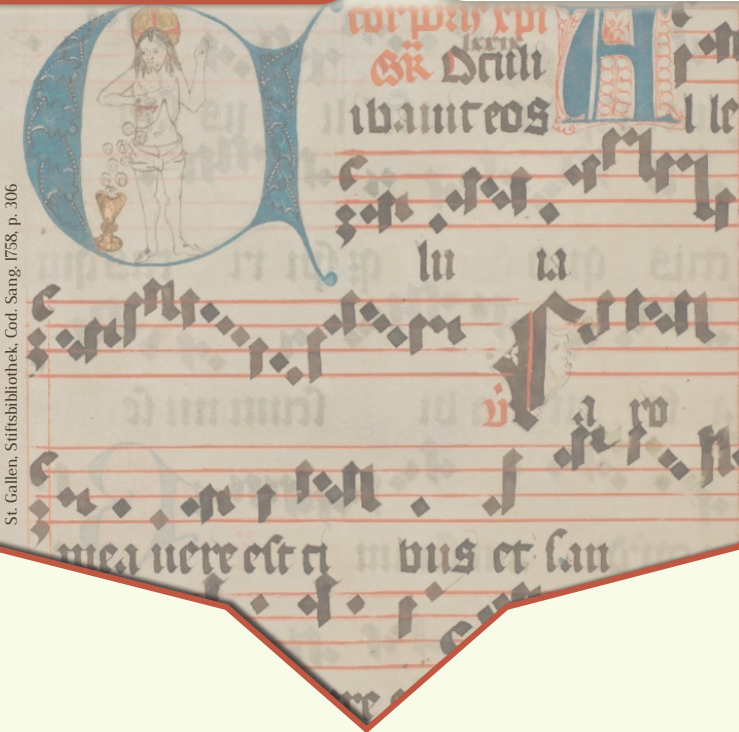 St. Gallen, Stiftsbibliothek, Cod. Sang. 1758, p. 306
corporis xpi
GR Oculi
A
l le
lu ia
C aro
mea uere est ci bus et san